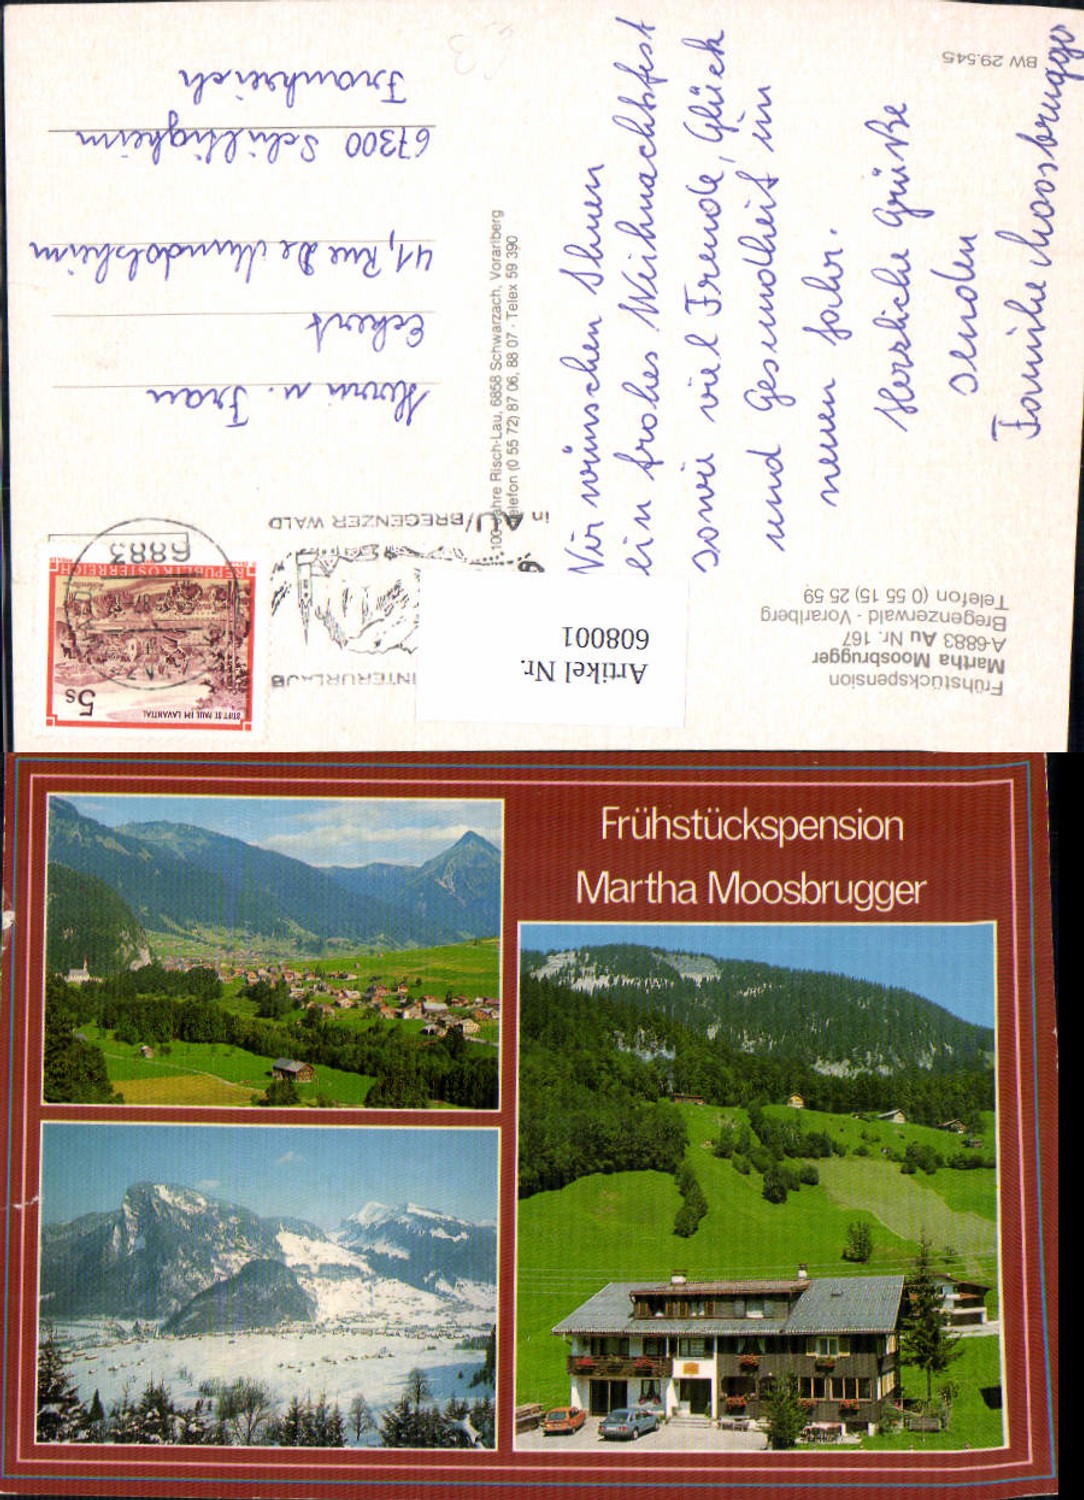 Frühstückspension
Martha Moosbrugger
A-6883 Au Nr. 167
Bregenzerwald - Vorarlberg
Telefon (0 55 15) 25 59
BW 29.545
Wir wünschen Ihnen
ein frohes Weihnachtsfest
sowie viel Freude, Glück
und Gesundheit im
neuen Jahr.
Herzliche Grüße
senden
Familie Moosbrugger
100 Jahre Risch-Lau, 6858 Schwarzach, Vorarlberg
Telefon (0 55 72) 87 06, 88 07 - Telex 59 390
Artikel Nr.
608001
WINTERURLAUB
in AU/BREGENZER WALD
6883
STIFT ST. PAUL IM LAVANTTAL
5 S
REPUBLIK ÖSTERREICH
Herrn u. Frau
Eckert
41, Rue de Mundolsheim
67300 Schiltigheim
Frankreich
Frühstückspension
Martha Moosbrugger